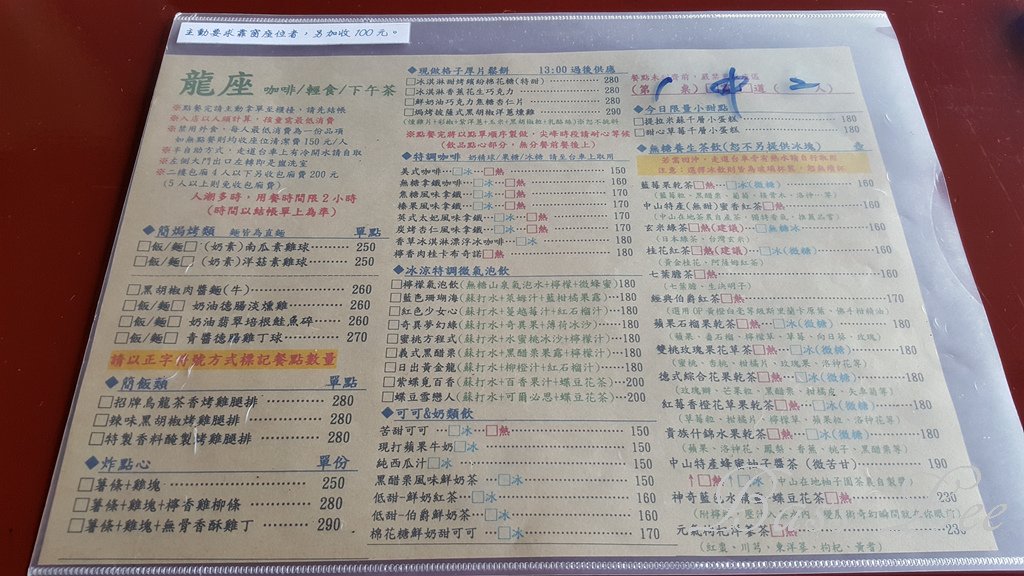 主動要求靠窗座位者,另加收100元。
龍座 咖啡/輕食/下午茶
※點餐完請主動拿單至櫃檯,請先結帳
※入店以人頭計算,孩童需最低消費
※禁用外食,每人最低消費為一份品項
如無點餐則均收座位清潔費150元/人
※半自助方式,走道台車上有冷開水請自取
※左側大門出口左轉即是盥洗室
※二樓包廂4人以下另收包廂費200元
(5人以上則免收包廂費)
人潮多時,用餐時間限2小時
(時間以結帳單上為準)
◆簡焗烤類 麵皆為直麵 單點
□飯/麵□ (奶素)南瓜素雞球 250
□飯/麵□ (奶素)洋菇素雞球 250
□黑胡椒肉醬麵(牛) 260
□飯/麵□ 奶油德腸淡燻雞 260
□飯/麵□ 奶油翡翠培根鮭魚碎 260
□飯/麵□ 青醬德腸雞丁球 270
請以正字 號方式標記餐點數量
◆簡飯類 單點
□招牌烏龍茶香烤雞腿排 280
□辣味黑胡椒烤雞腿排 280
□特製香料醃製烤雞腿排 280
◆炸點心 單份
□薯條+雞塊 250
□薯條+雞塊+檸香雞柳條 280
□薯條+雞塊+無骨香酥雞丁 290
◆現做格子厚片鬆餅 13:00過後供應
□冰淇淋甜烤繽紛棉花糖(特甜) 280
□冰淇淋香蕉花生巧克力 280
□鮮奶油巧克力焦糖杏仁片 280
□焗烤披薩式黑胡椒洋蔥燻雞 290
※點餐完將以點單順序製做,尖峰時段請耐心等候
(飲品點心部分,無分餐前餐後上)
◆特調咖啡 奶精球/果糖/冰糖 請至台車上取用
美式咖啡 □冰 □熱 150
無糖拿鐵咖啡 □冰 □熱 160
焦糖風味拿鐵 □冰 □熱 170
榛果風味拿鐵 □冰 □熱 170
英式太妃風味拿鐵 □冰 □熱 170
炭烤杏仁風味拿鐵 □冰 □熱 170
香草冰淇淋漂浮冰咖啡 □冰 180
檸香肉桂卡布奇諾 □熱 180
◆冰涼特調微氣泡飲
□檸檬氣泡飲(無糖山泉氣泡水+檸檬+微蜂蜜)180
□藍色珊瑚海(蘇打水+萊姆汁+藍柑橘果露)180
□紅色少女心(蘇打水+蔓越莓汁+紅石榴汁)180
□奇異夢幻綠(蘇打水+奇異果+薄荷冰沙)180
□蜜桃方程式(蘇打水+水蜜桃冰沙+檸檬汁)180
□義式黑醋栗(蘇打水+黑醋栗果露+檸檬汁)180
□日出黃金龍(蘇打水+柳橙汁+紅石榴汁)180
□紫蝶覓百香(蘇打水+百香果汁+蝶豆花茶)200
□蝶豆雪戀人(蘇打水+可爾必思+蝶豆花茶)200
◆可可&奶類飲
苦甜可可 □冰 □熱 150
現打蘋果牛奶□冰 150
純西瓜汁□冰 150
黑醋栗風味鮮奶□冰 150
低甜-鮮奶紅茶 □冰 □熱 160
低甜-伯爵鮮奶茶 □冰 □熱 160
棉花糖鮮奶甜可可 □冰 □熱 170
◆今日限量小甜點
□提拉米蘇千層小蛋糕 180
□甜心草莓千層小蛋糕 180
◆無糖養生茶飲(恕不另提供冰塊) 壺
藍莓果乾茶□熱 □冰(微糖) 160
中山特產(無甜)蜜香紅茶□熱 160
玄米綠茶□熱(建議) □無糖冰 160
(日本綠茶、台灣玄米)
桂花紅茶□熱(建議) □冰(微糖) 160
(黃金桂花、阿薩姆紅茶)
七葉膽茶□熱 160
(七葉膽、生決明子)
經典伯爵紅茶□熱 170
蘋果石榴果乾茶□熱 □冰(微糖) 180
雙桃玫瑰果花草茶□熱 □冰(微糖) 180
德式綜合花果乾茶□熱 □冰(微糖) 180
紅莓香橙花草果乾茶□熱 □冰(微糖) 180
貴族什錦水果乾茶□熱 □冰(微糖) 180
中山特產蜂蜜柚子醬茶(微苦甘) 190
□熱 □冰
蝶豆花茶□熱 230
(紅棗、川芎、東洋蔘、枸杞、黃耆)